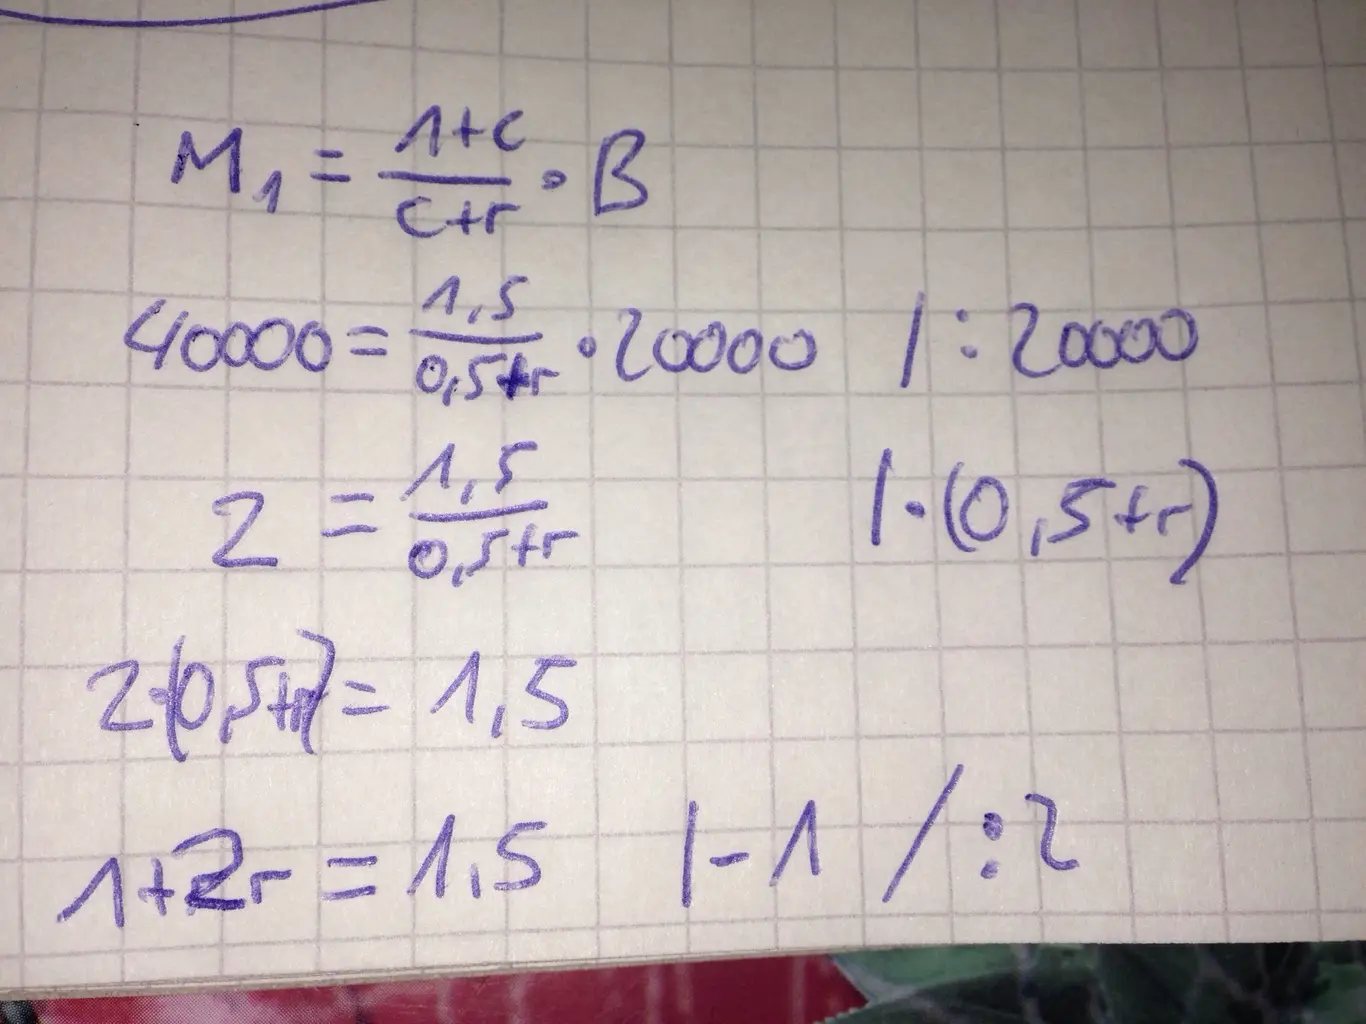 M₁ = (1+c)/(c+r) · B
40000 = 1,5/(0,5+r) · 20000 | : 20000
2 = 1,5/(0,5+r) | · (0,5+r)
2·(0,5+r) = 1,5
1+2r = 1,5 | -1 / :2